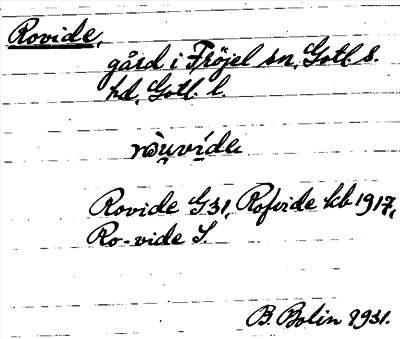 Rovide,
gård i Fröjel sn, Gotl. s.
hd, Gotl. l.
ròu̯ví̱de
Rovide G31, Rofvide kb 1917,
Ro-vide S.
B. Bolin 1931.